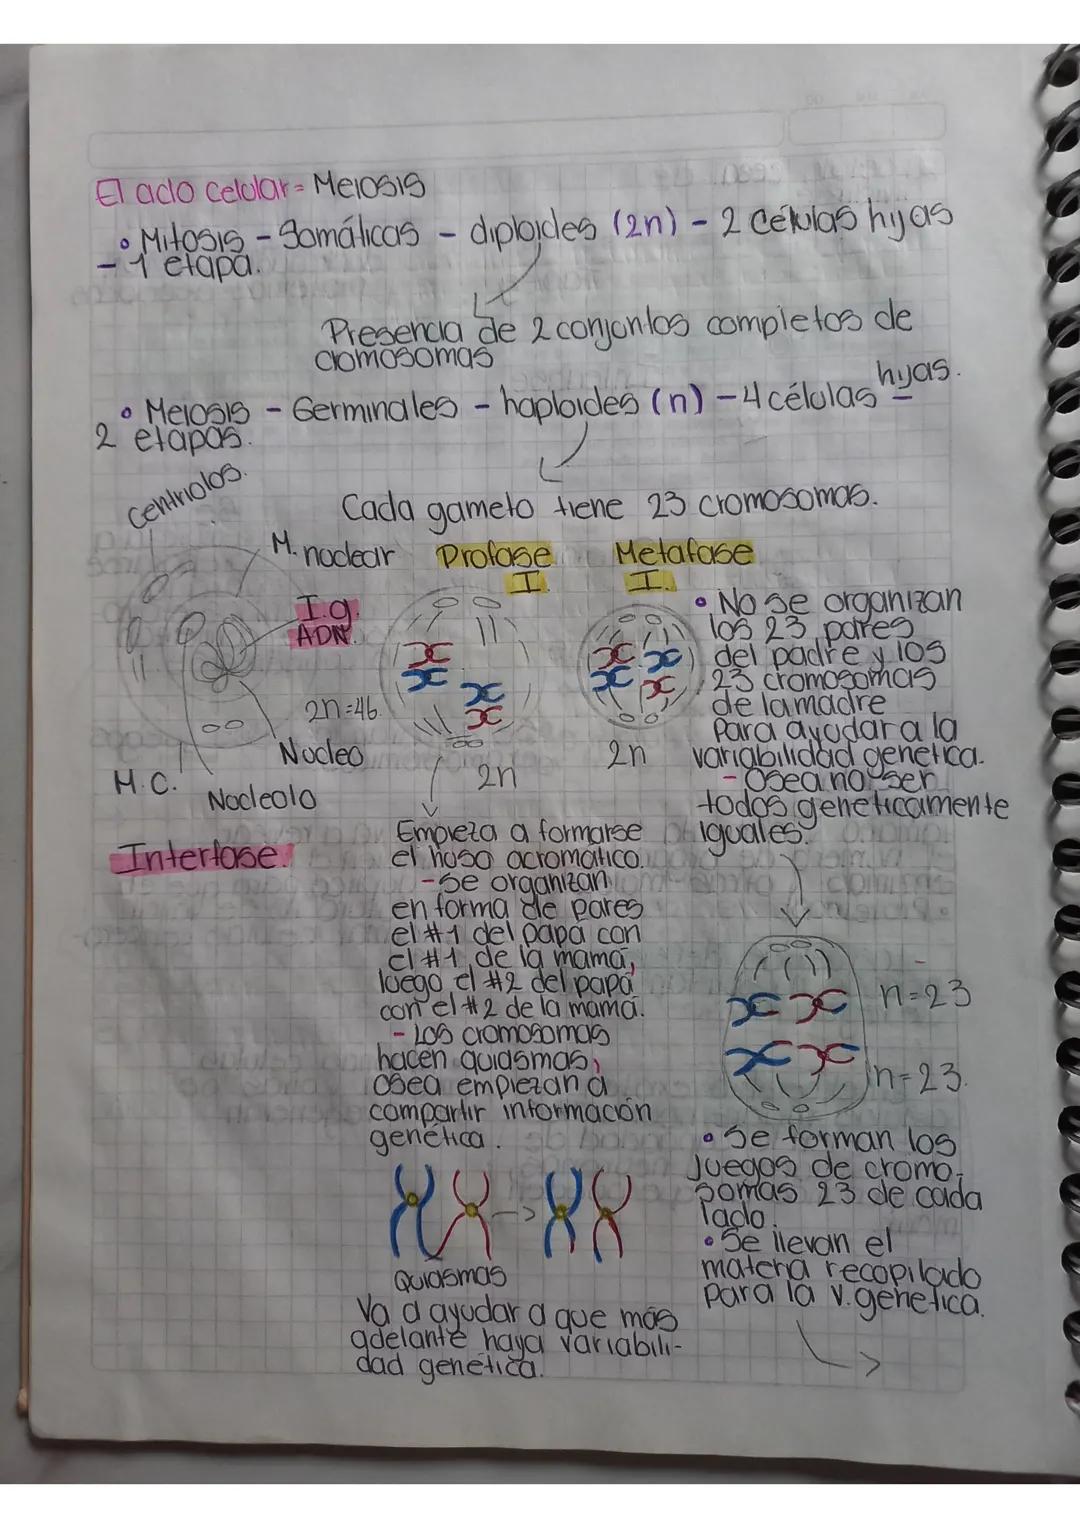 El ciclo celular = Meiosis
• Mitosis - Somáticas - diploides (2n) - 2 células hijas
- 1 etapa.
Presencia de 2 conjuntos completos de
cromosomas
• Meiosis - Germinales - haploides (n) - 4 células hijas. -
2 etapas.
Cada gameto tiene 23 cromosomas.
centriolos.
M. nuclear
I.g.
ADN.
2n=46.
Nucleo
Nucleolo
M.C.
Interfase.
Profase
I.
2n
Empieza a formarse
el huso acromatico.
- Se organizan
en forma de pares
el #1 del papá con
el #1 de la mamá,
luego el #2 del papá
con el #2 de la mamá.
- Los cromosomas
hacen quiasmas,
osea empiezan a
compartir información
genética.
Quiasmas
Va a ayudar a que más
adelante haya variabili-
dad genética.
Metafase
I.
2n
• No se organizan
los 23 pares
del padre y los
23 cromosomas
de la madre
para ayudar a la
variabilidad genetica.
- Osea no ser
todos geneticamente
iguales.
n=23
n=23.
• Se forman los
juegos de cromo-
somas 23 de cada
lado.
• Se llevan el
materia recopilado
para la v. genetica.